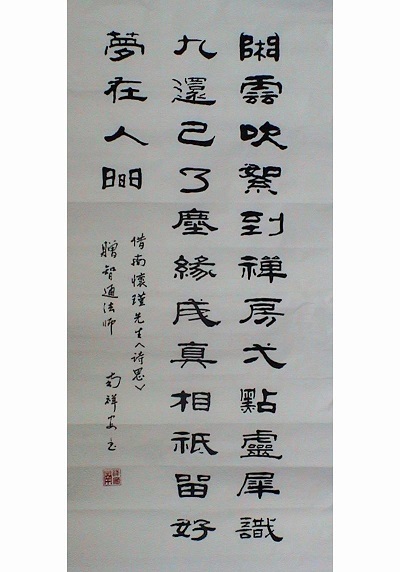 閑雲吹絮到禪房弌點靈犀識
九還已了塵緣成真相祗留好
夢在人間
借南懷瑾先生《诗思》
贈智通法师
祥安书